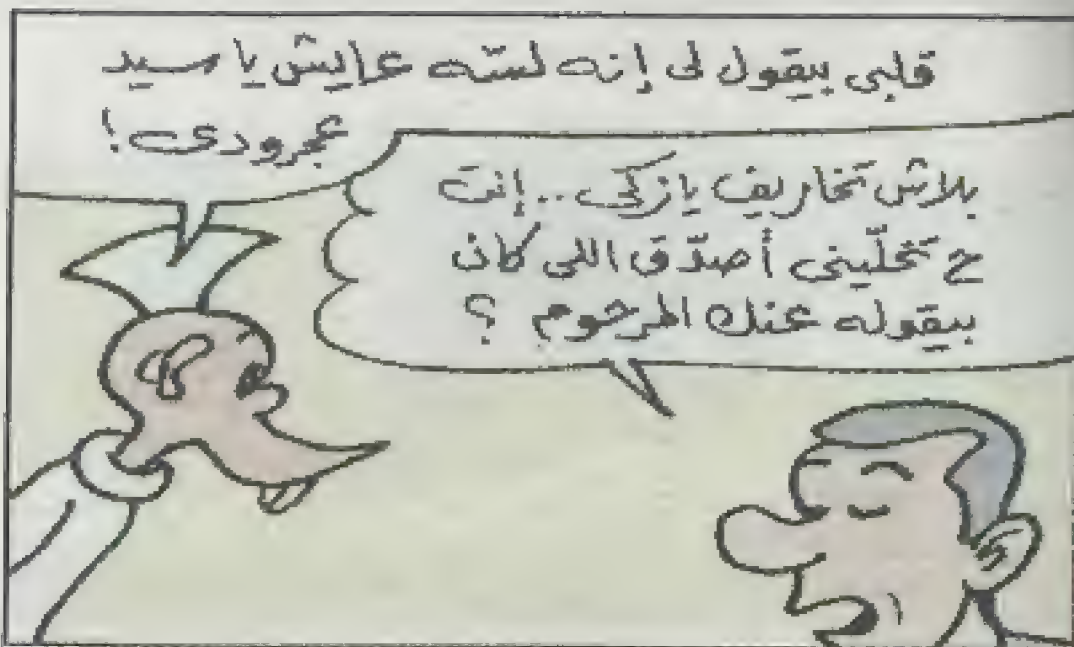 قلبى بيقول لى إنه لسّه عايش يا سيد
عجرودى!
بلاش تخاريف يا زكى .. إنت
ح تخلّينى أصدّق اللى كان
بيقوله عنك المرحوم ؟